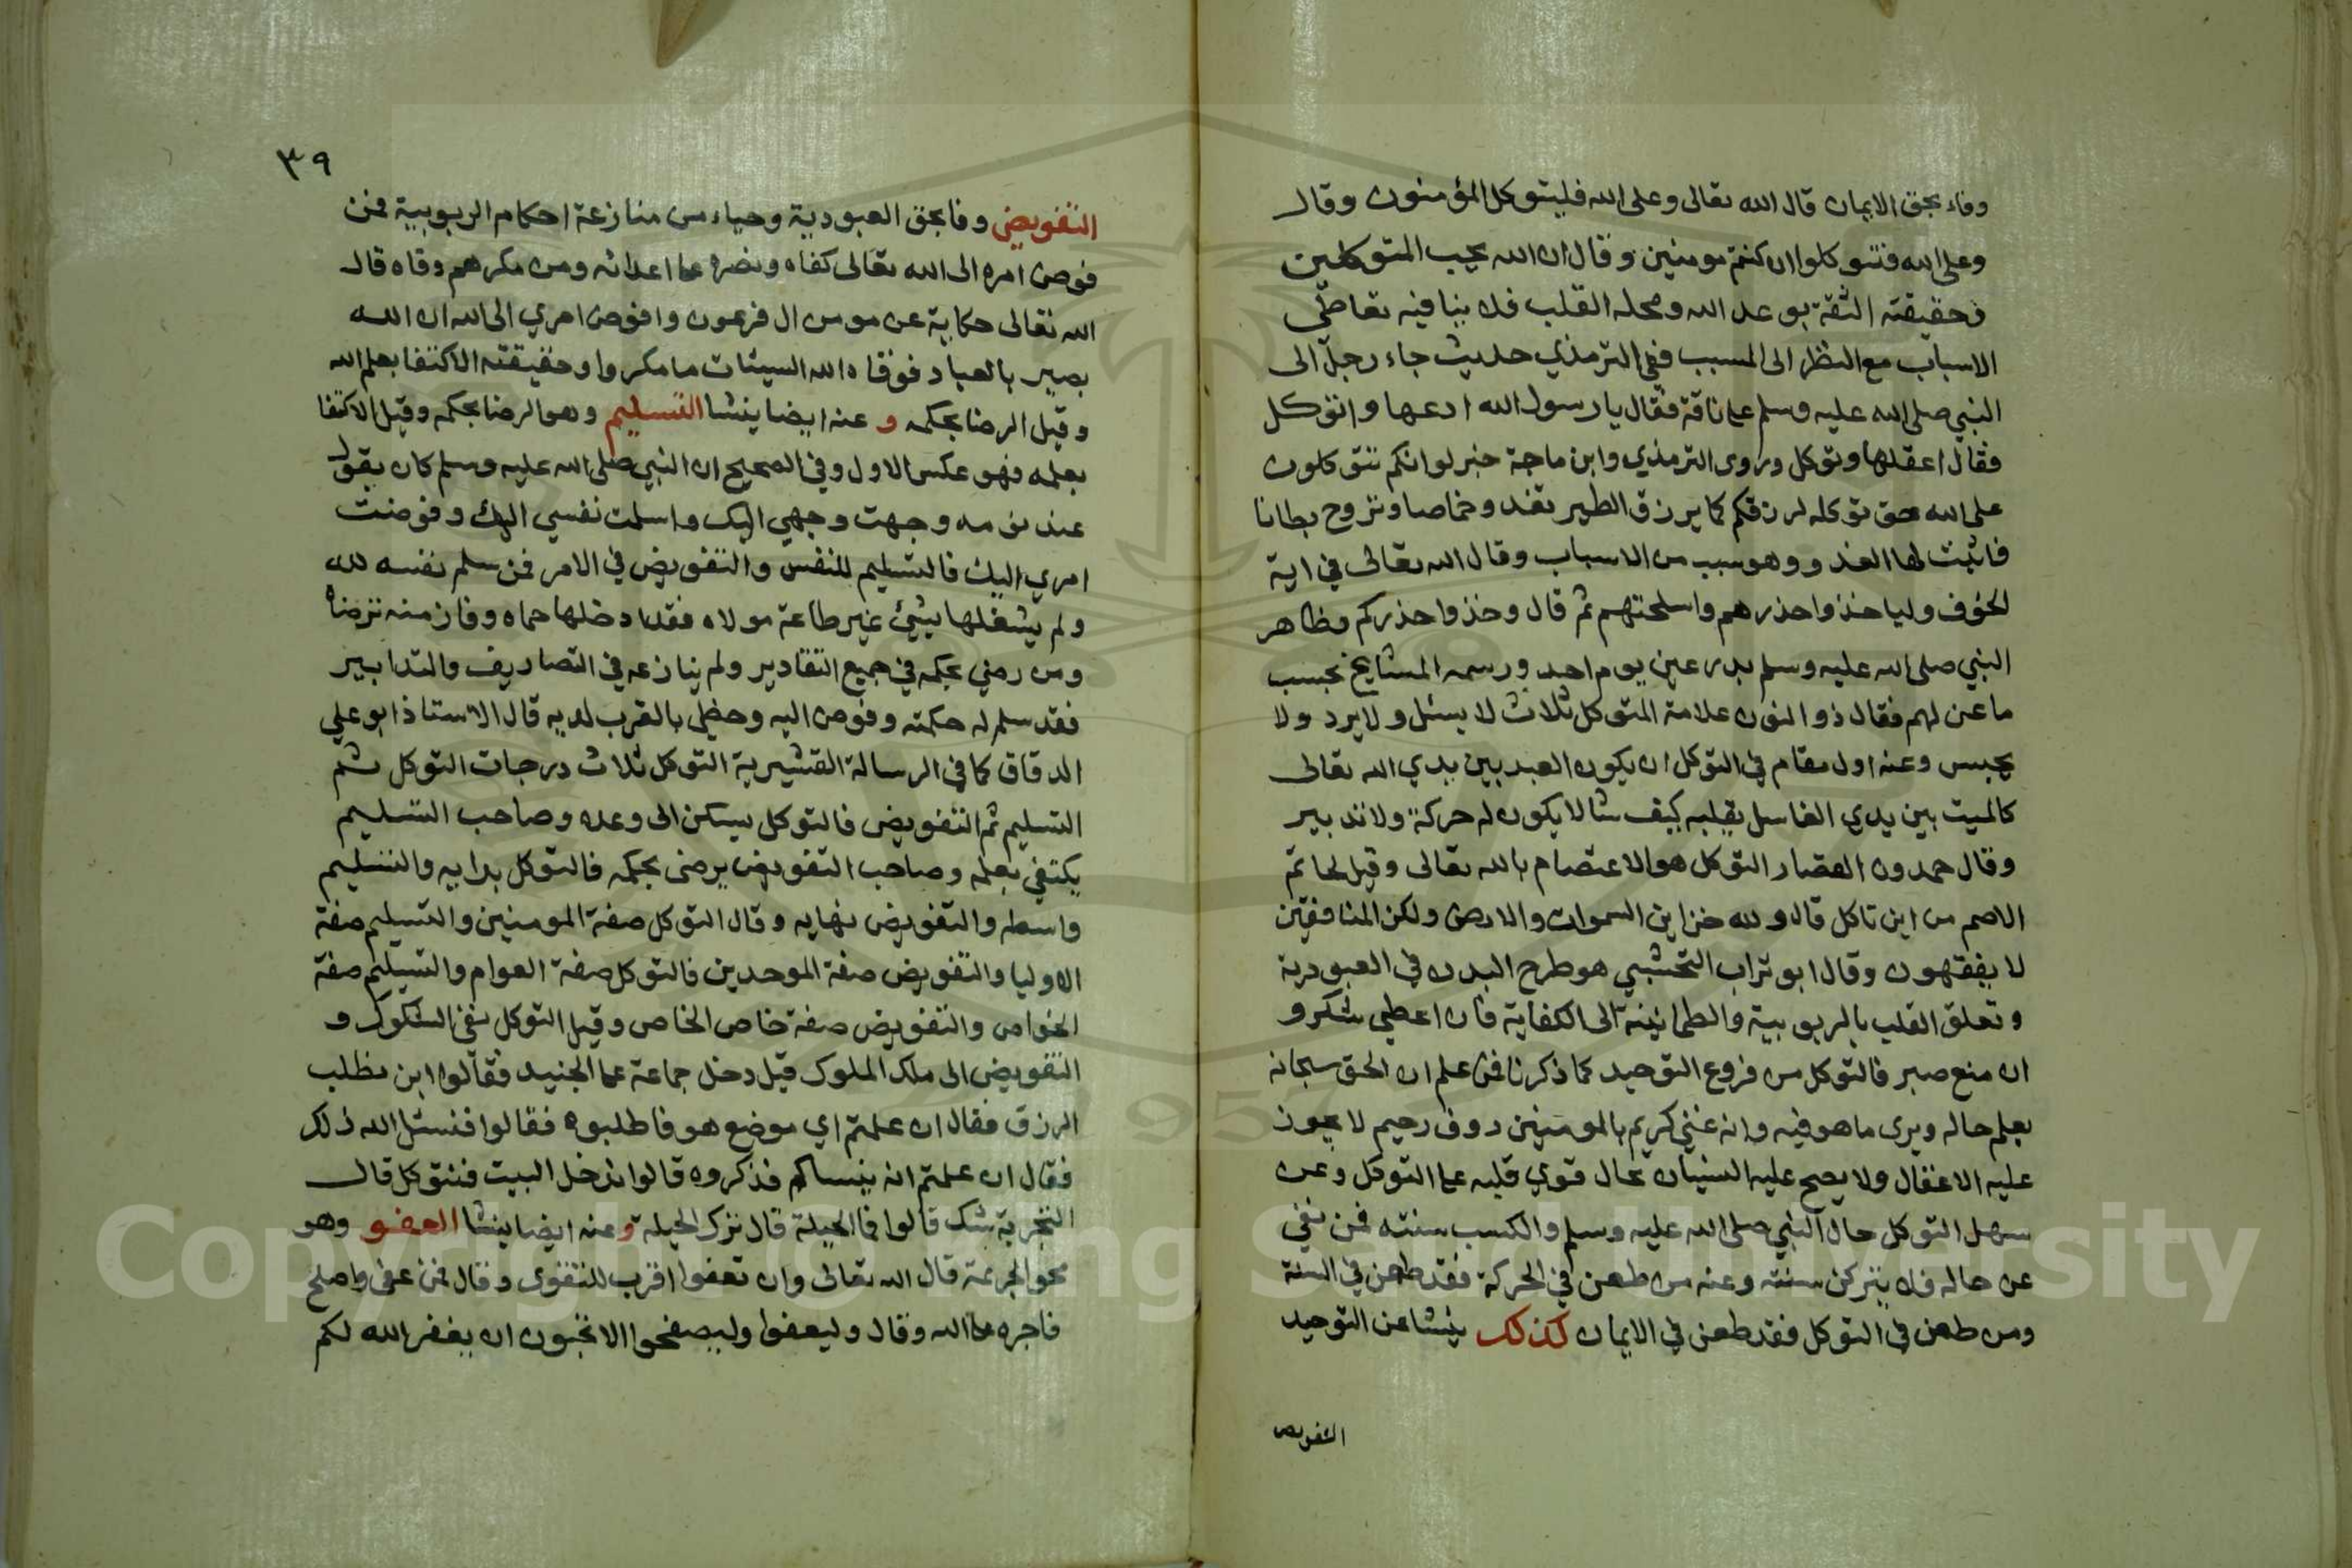 وفاء بحق الايمان قال الله تعالى وعلى الله فليتوكل المؤمنون وقال
وعلى الله فتتوكلوا ان كنتم مومنين وقال ان الله يحب المتوكلين
فحقيقته الثقة بوعد الله ومحله القلب فلا ينافيه تعاطي
الاسباب مع النظر الى المسبب ففي الترمذي حديث جاء رجل الى
النبي صلى الله عليه وسلم على ناقة فقال يا رسول الله ادعها واتوكل
فقال اعقلها وتوكل وروى الترمذي وابن ماجة خبر لو انكم تتوكلون
على الله حق توكله لرزقكم كما يرزق الطير تغدو خماصا وتروح بطانا
فاثبت لها الغدو وهو سبب من الاسباب وقال الله تعالى في اية
الخوف ولياخذوا حذرهم واسلحتهم ثم قال وخذوا حذركم وظاهر
النبي صلى الله عليه وسلم بدرعين يوم احد ورسمه المشايخ بحسب
ما عن لهم فقال ذو النون علامة المتوكل ثلاث لا يسئل ولا يرد ولا
يحبس وعنه اول مقام في التوكل ان يكون العبد بين يدي الله تعالى
كالميت بين يدي الغاسل يقلبه كيف شا لا يكون له حركة ولا تدبير
وقال حمدون القصار التوكل هو الاعتصام بالله تعالى وقيل لحاتم
الاصم من اين تاكل قال ولله خزاين السموات والارض ولكن المنافقين
لا يفقهون وقال ابو تراب النخشبي هو طرح البدن في العبودية
وتعلق القلب بالربوبية والطمانينة الى الكفاية فان اعطي شكر و
ان منع صبر فالتوكل من فروع التوحيد كما ذكرنا فمن علم ان الحق سبحانه
يعلم حاله ويرى ما هو فيه وانه غني كريم بالمومنين روف رحيم لا يجوز
عليه الاغفال ولا يصح عليه النسيان بحال قوي قلبه على التوكل وعن
سهل التوكل حال النبي صلى الله عليه وسلم والكسب سنته فمن نفي
عن حاله فلا يتركن سنته وعنه من طعن في الحركة فقد طعن في السنة
ومن طعن في التوكل فقد طعن في الايمان كذلك ينشا عن التوحيد
التفويض
٣٩
التفويض وفا بحق العبودية وحياء من منازعة احكام الربوبية فمن
فوض امره الى الله تعالى كفاه ونصره على اعدائه ومن مكرهم وقاه قال
الله تعالى حكاية عن مومن ال فرعون وافوض امري الى الله ان الله
بصير بالعباد فوقاه الله السيئات ما مكروا وحقيقته الاكتفا بعلم الله
وقيل الرضا بحكمه و عنه ايضا ينشا التسليم وهو الرضا بحكمه وقيل الاكتفا
بعلمه فهو عكس الاول وفي الصحيح ان النبي صلى الله عليه وسلم كان يقول
عند نومه وجهت وجهي اليك واسلمت نفسي اليك وفوضت
امري اليك فالتسليم للنفس والتفويض في الامر فمن سلم نفسه لله
ولم يشغلها بشئ غير طاعة مولاه فقد ادخلها حماه وفاز منه برضاه
ومن رضي بحكمه في جميع التقادير ولم ينازعه في التصاريف والتدابير
فقد سلم له حكمته وفوض اليه وحظي بالقرب لديه قال الاستاذ ابو علي
الدقاق كما في الرسالة القشيرية التوكل ثلاث درجات التوكل ثم
التسليم ثم التفويض فالتوكل يسكن الى وعده وصاحب التسليم
يكتفي بعلمه وصاحب التفويض يرضى بحكمه فالتوكل بدايه والتسليم
واسطه والتفويض نهايه وقال التوكل صفة المومنين والتسليم صفة
الاوليا والتفويض صفة الموحدين فالتوكل صفة العوام والتسليم صفة
الخواص والتفويض صفة خاص الخاص وقيل التوكل نفي الشكوك و
التفويض الى ملك الملوك قيل دخل جماعة على الجنيد فقالوا اين نطلب
الرزق فقال ان علمتم اي موضع هو فاطلبوه فقالوا فنسئل الله ذلك
فقال ان علمتم انه ينساكم فذكروه قالوا ندخل البيت فنتوكل قال
التجربة شك قالوا فما الحيلة قال ترك الحيلة وعنه ايضا ينشا العفو وهو
محو الجريمة قال الله تعالى وان تعفوا اقرب للتقوى وقال فمن عفى واصلح
فاجره على الله وقال وليعفوا وليصفحوا الا تحبون ان يغفر الله لكم
Copyright © King Saud University
1957